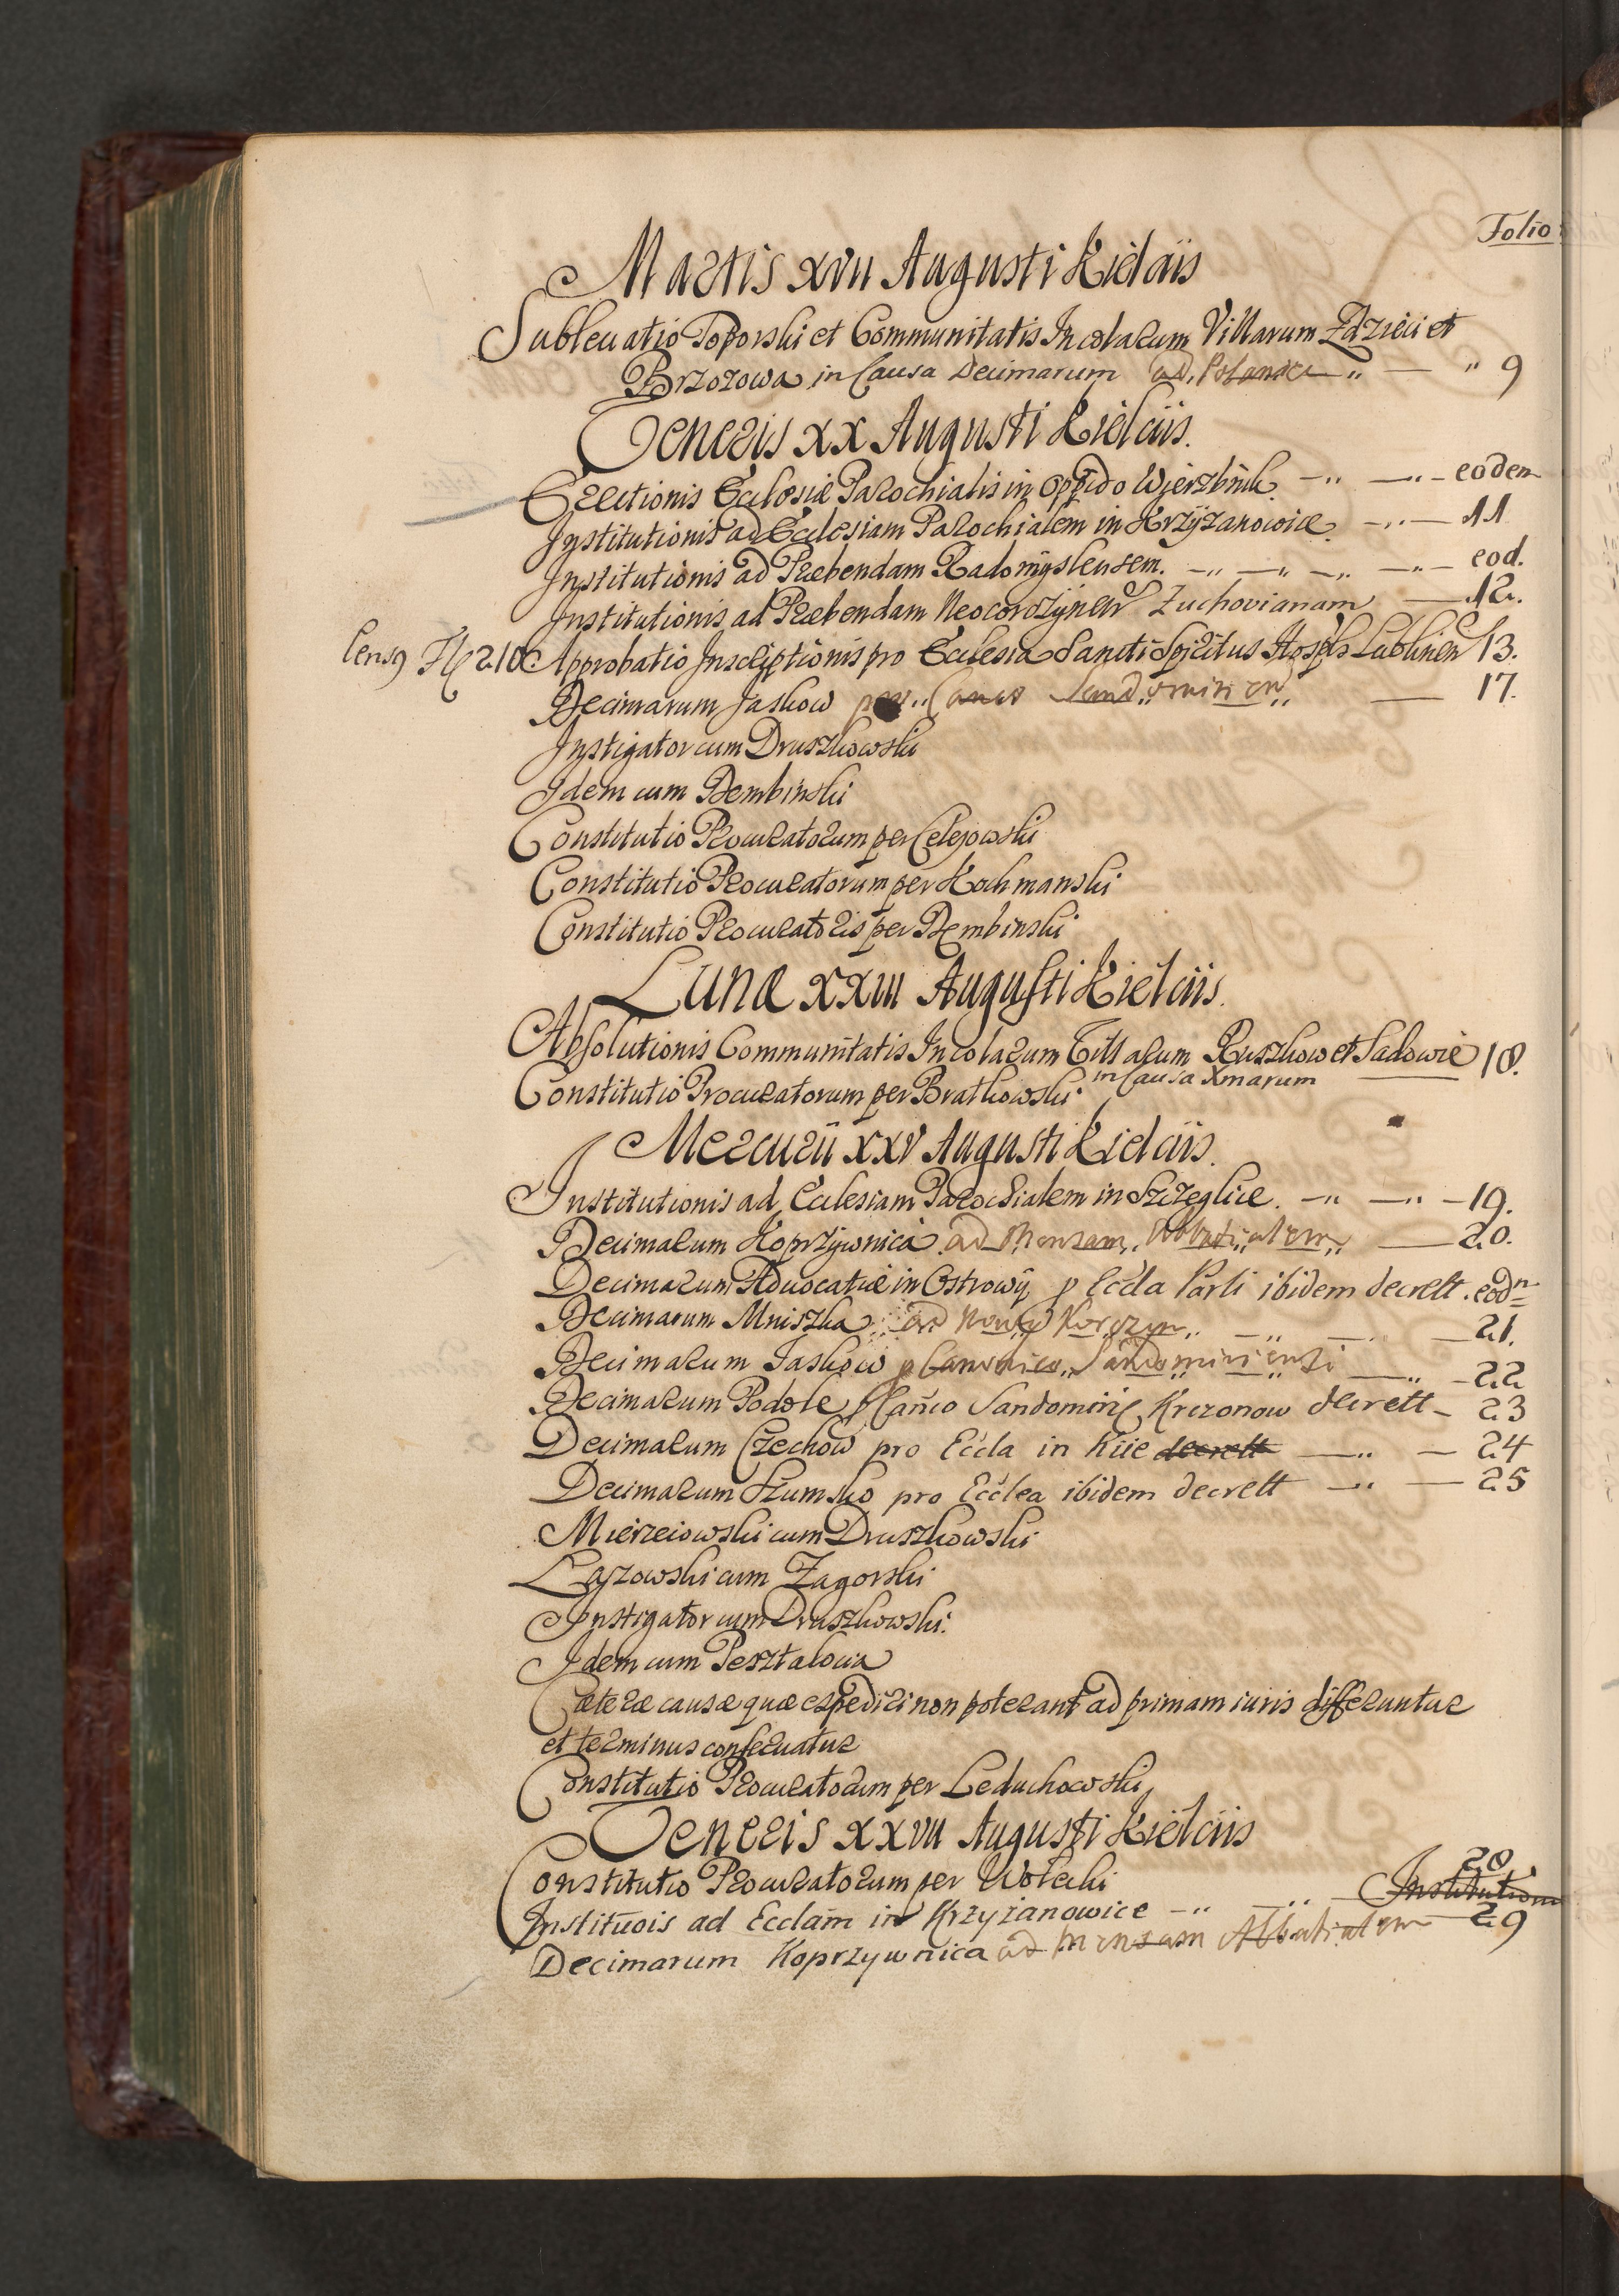 Folio
Martis XVII Augusti Kielciis
Subleuatio Toporski et Communitatis Incolarum Villarum Zdzieci et
Brzozowa in Causa Decimarum ad 9
Veneris XX Augusti Kielciis.
Erectionis Ecclesiæ Parochialis in oppido Wierzbnik. eodem
Institutionis ad Ecclesiam Parochialem in Krzyzanowice. 11
Institutionis ad Præbendam Radomyslensem. eod.
Institutionis ad Præbendam Neocorczynen Zuchovianam 12.
Approbatio Inscriptionis pro Ecclesia Sancti Spiritus Hospls Lublinen 13.
Decimarum Jaskow 17.
Instigator cum Druszkowski
Idem cum Dembinski
Constitutio Procuratorum per Celejowski
Constitutio Procuratorum per Kochmanski
Constitutio Procuratoris per Dembinski
Lunæ XXIII Augusti Kielciis.
Absolutionis Communitatis Incolarum Villarum Ruszkow et Sadowie 18.
in Causa Xmarum
Constitutio Procuratorum per Bratkowski
Mercurii XXV Augusti Kielciis.
Institutionis ad Ecclesiam Parochialem in Szczeglice. 19.
Decimarum Koprzywnica ad Mensam Abbatialem 20.
Decimarum Aduocatiæ in Ostrowy p Eccla Parli ibidem decrett. eodn
Decimarum Mniszka ad Nowy Korczyn 21.
Decimarum Jaskow p Canonico Sandomiriensi 22
Decimarum Podole p Canco Sandomiri Krczonow decrett 23
Decimarum Czechow pro Eccla in Kiie decrett 24
Decimarum Szumsko pro Ecclea ibidem decrett 25
Mierzeiowski cum Druszkowski
Lazowski cum Zagorski
Instigator cum Druszkowski.
Idem cum Pesztalocia
Cæteræ causæ quæ expediri non poterant ad primam iuris differuntur
et terminus conseruatur
Constitutio Procuratorum per Leduchowski
Veneris XXVII Augusti Kielciis
Constitutio Procuratorum per Wolecki
Instituois ad Ecclam in Krzyzanowice Institution 28
Decimarum Koprzywnica ad Mensam Abbatialem 29